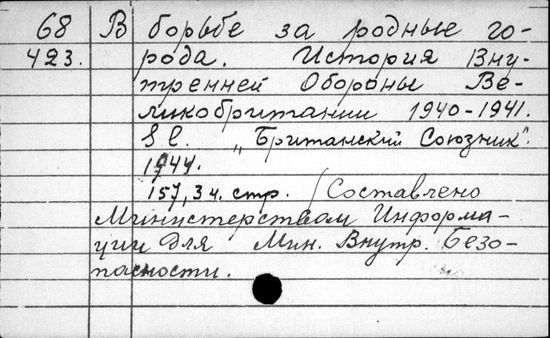 68 В борьбе за родные го-
423. рода. История Вну-
тренней Обороны Ве-
ликобритании 1940-1941.
S. l. „Британский Союзник".
1944.
157, 3 ч. стр. (Составлено
Министерством Информа-
ции для Мин. Внутр. Безо-
пасности.